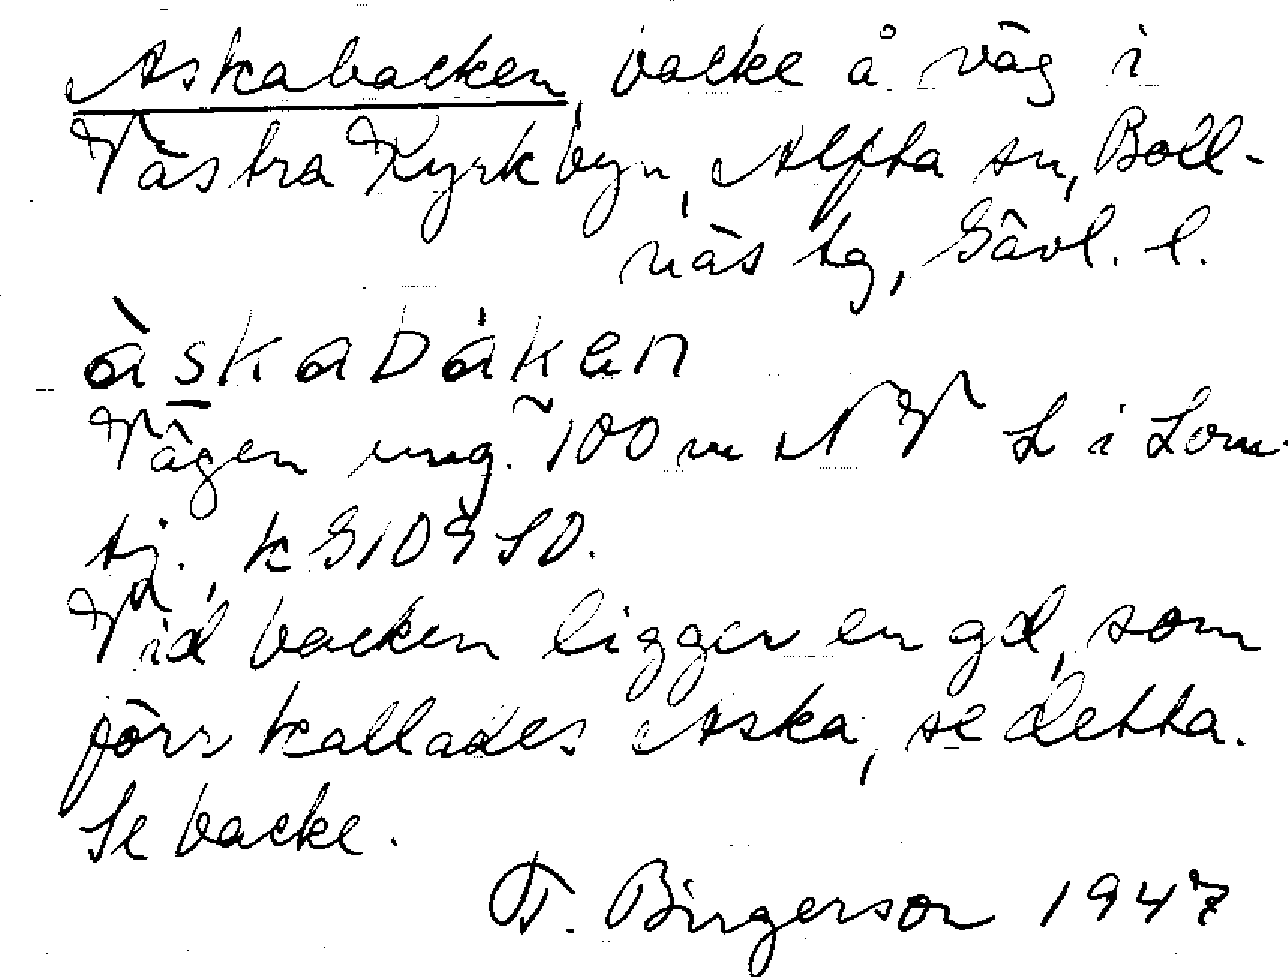 Askabacken, backe å väg i
Västra Kyrkbyn, Alfta sn, Boll-
näs tg, Gävl. l.
àskabákan
Vägen ung. 100 m NV L i Lom-
tj., k G1095D.
Vid backen ligger en gd, som
förr kallades Aska, se detta.
Se backe.
T. Birgerson 1947